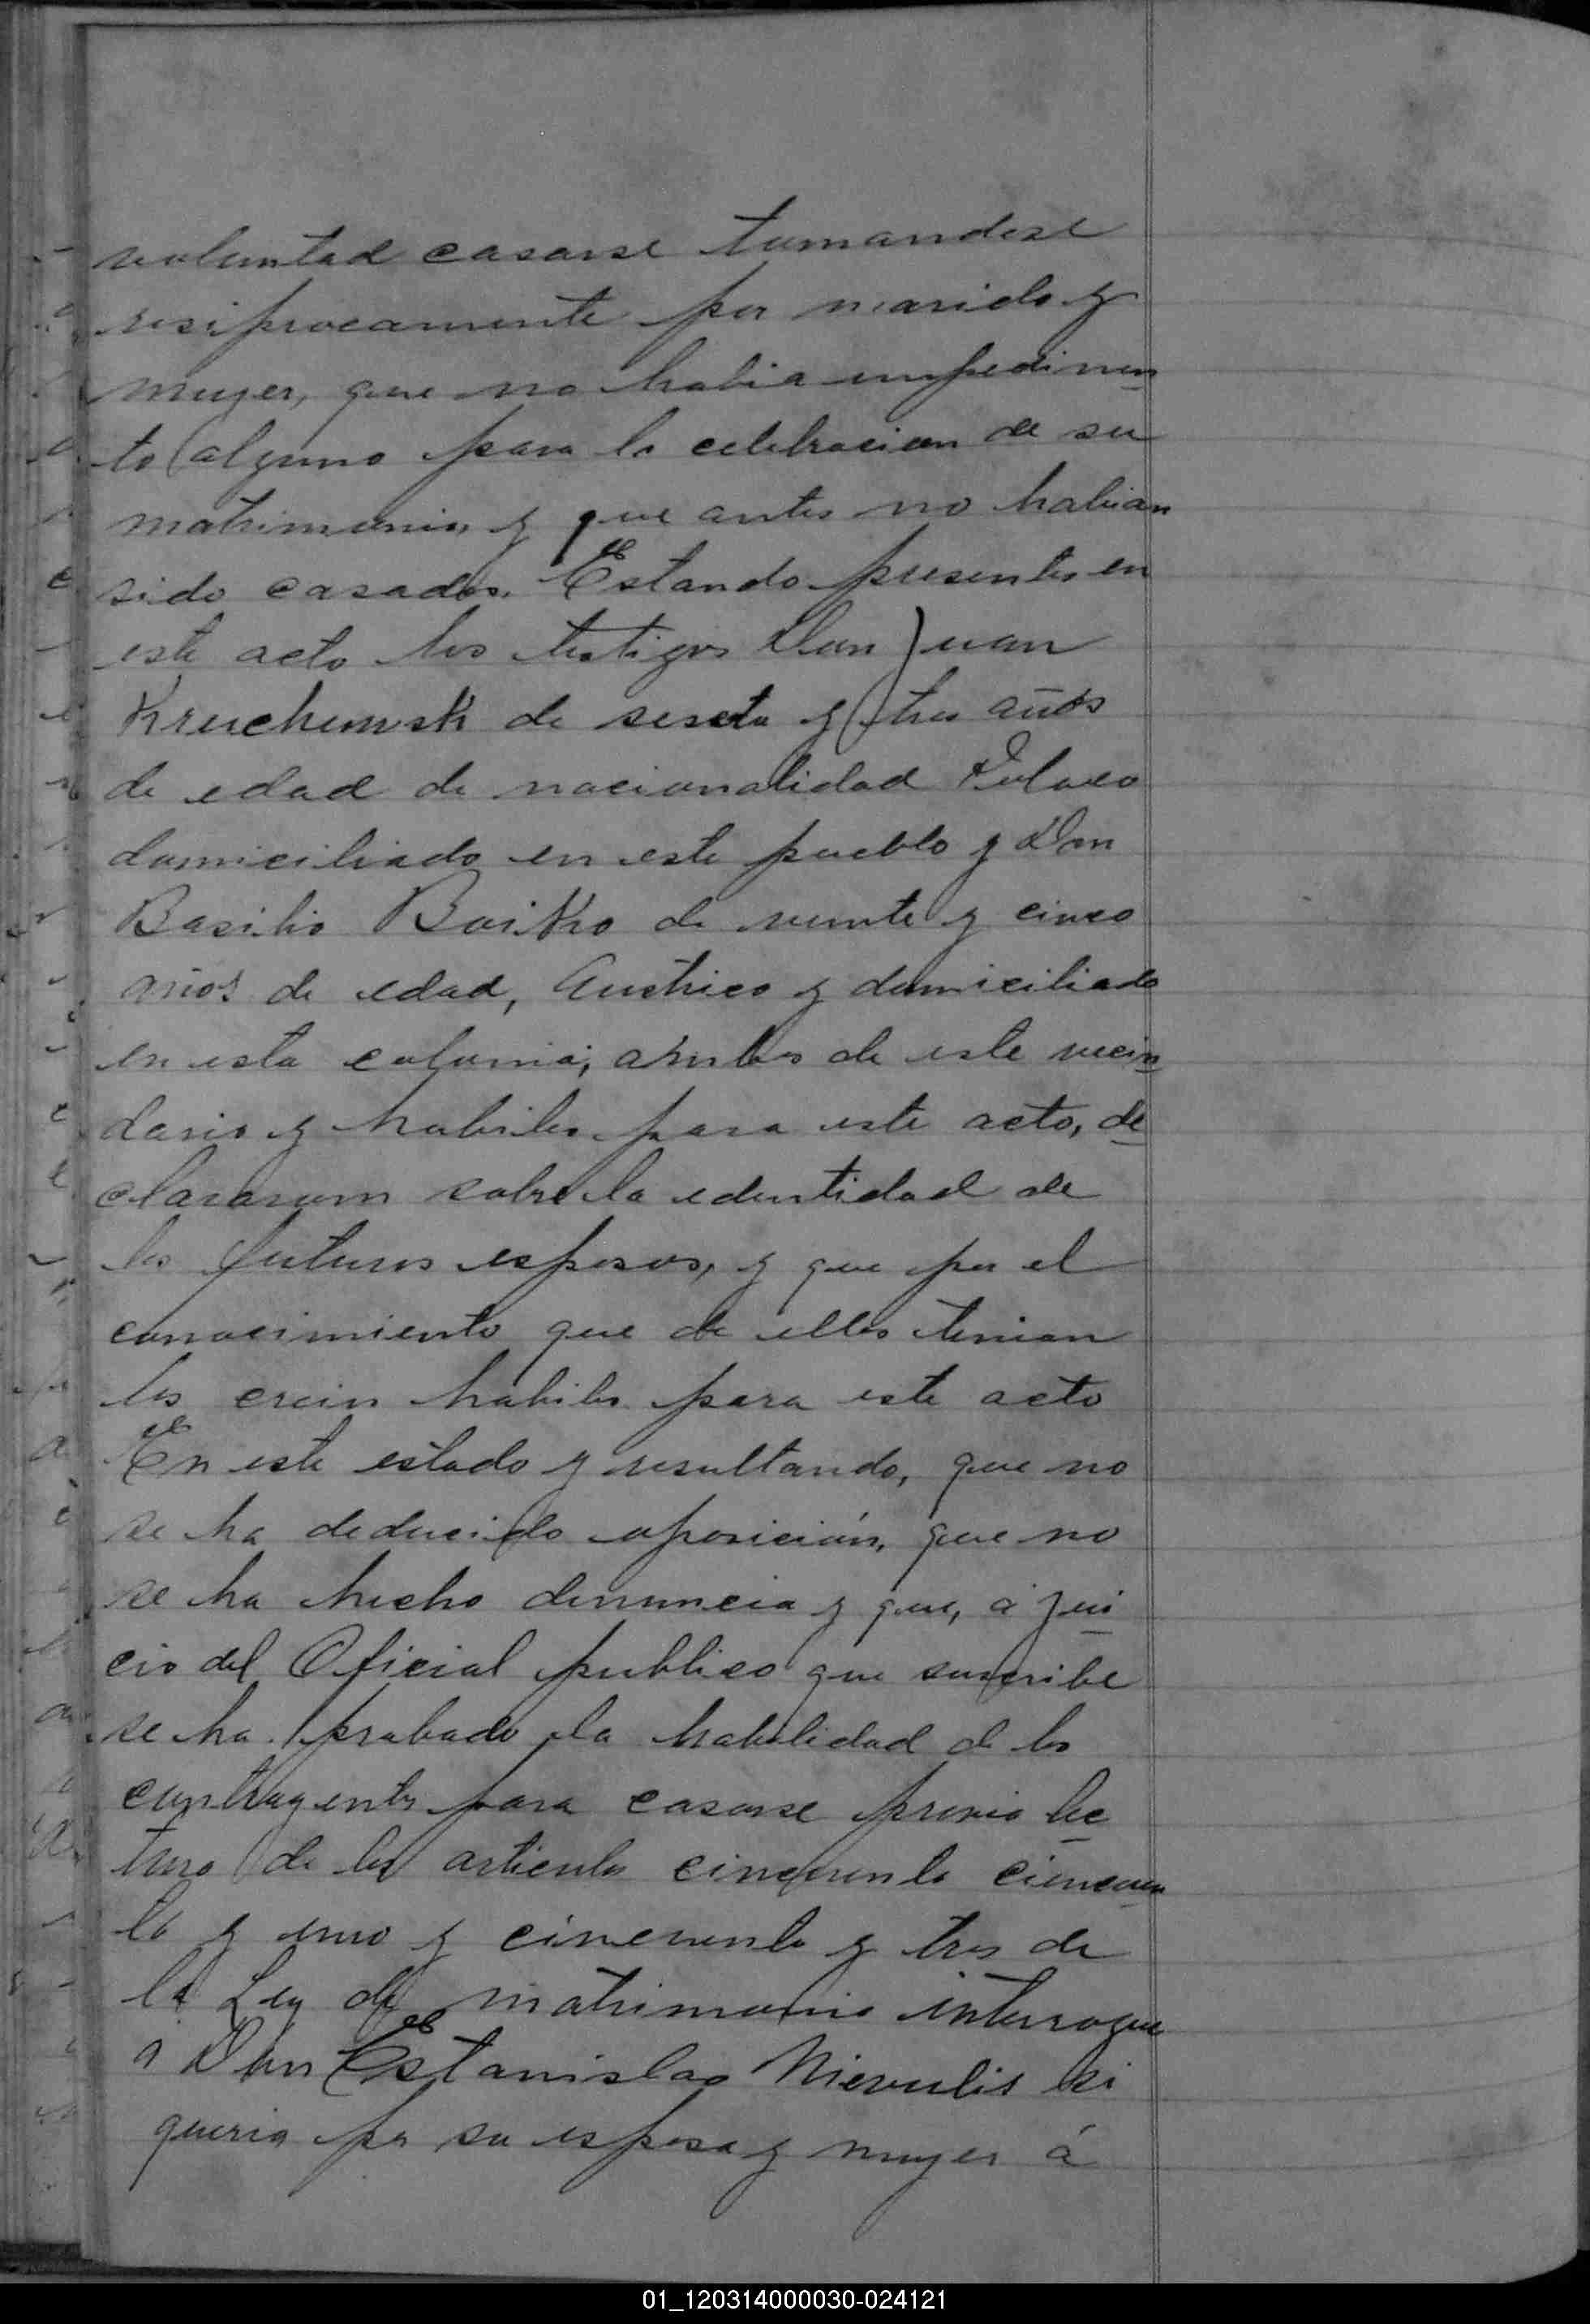 voluntad casarse tomandose
resiprocamente por marido y
mujer, que no habia impedimen
to alguno para la celebracion de su
matrimonio, y que antes no habian
sido casados. Estando presentes en
este acto los testigos Don Juan
de seseta y tres años
de edad de nacionalidad Polaco
domiciliado en este pueblo y Don
Basilio Boikko de veinte y cinco
años de edad, Austrico y domiciliado
en esta colonia; ambos de este vecin
dario y habiles para este acto, de
clararom sobre la edentidad de
los futuros esposos, y que por el
conocimiento que de ellos tenian
los crein habiles para este acto
En este estado y resultando, que no
se ha deducido oposición, que no
se ha hecho denuncia y que, á jui
cio del Oficial publico que suscribe
se ha probado la habilidad de los
contrayentes para casarse previa lec
tura de los articulos cincuenta cincuen
ta y uno y cincuenta y tres de
la Ley de matrimonio interrogue
a Don Estanislao Nievulis si
queria por su esposa y mujer á
01_120314000030-024121